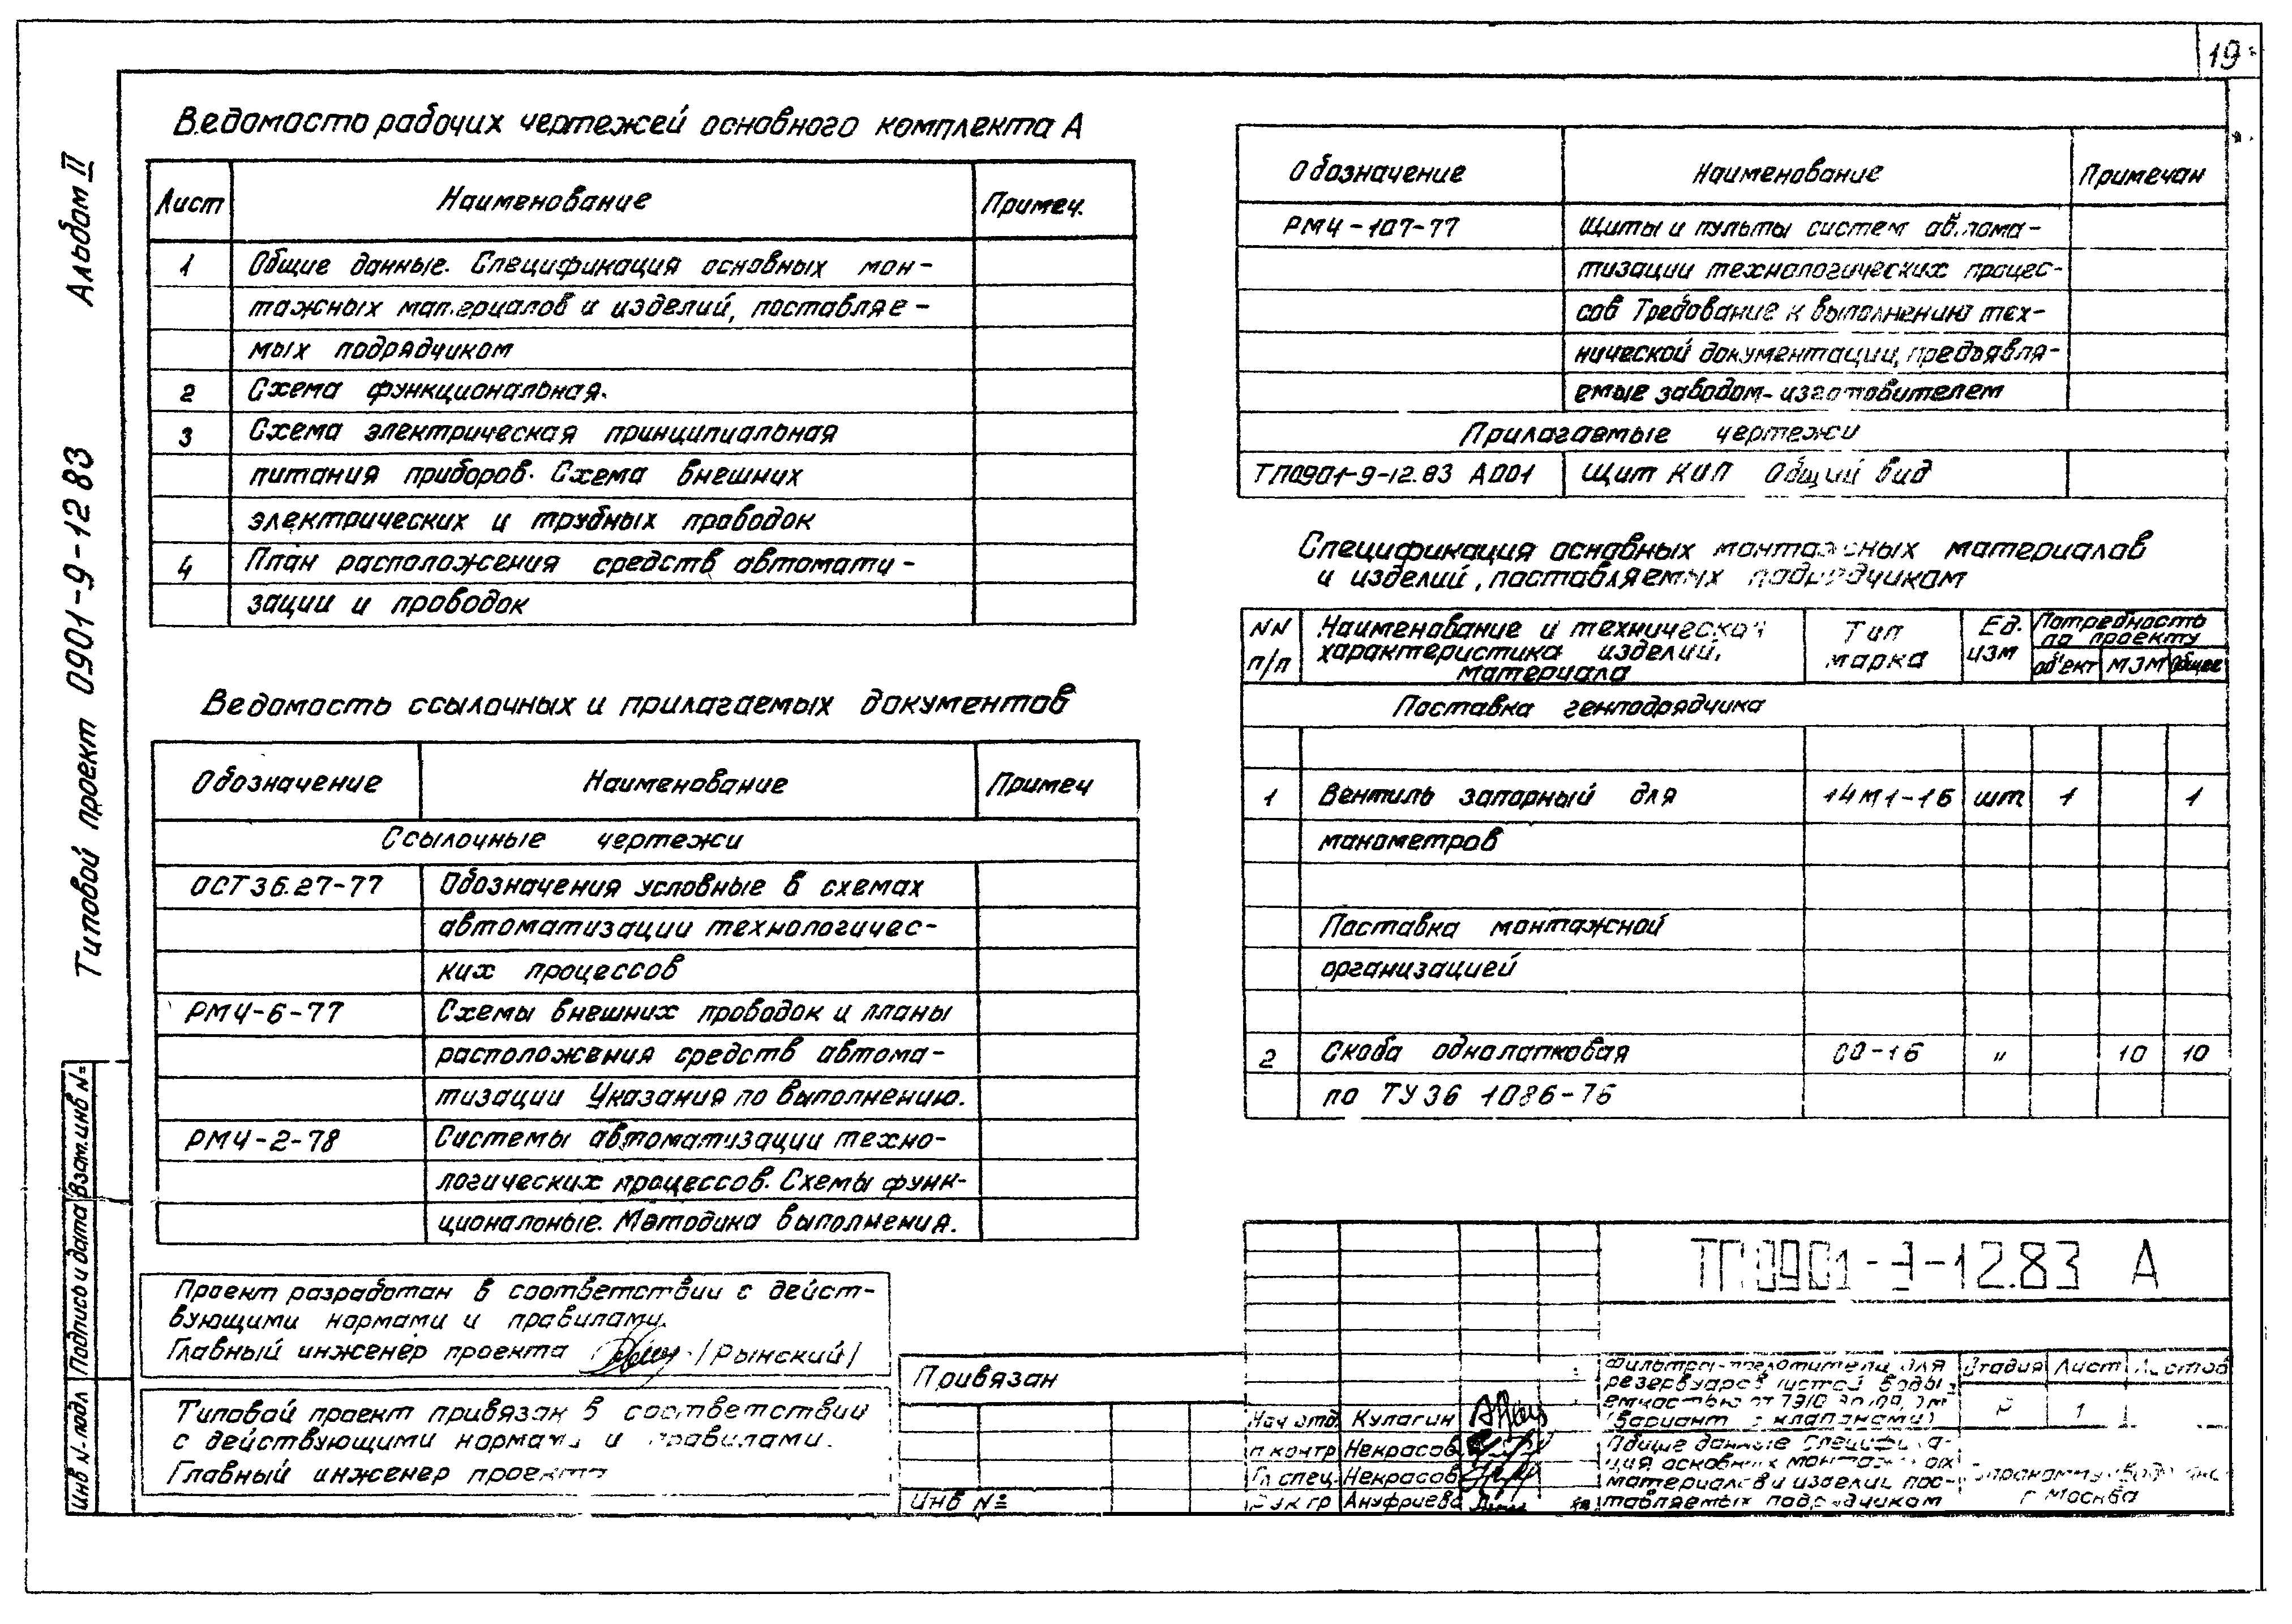 19
Альбом II
Типовой проект 0901-9-12 83
Взам.инв №
Подпись и дата
Инв № подл
Ведомость рабочих чертежей основного комплекта А
Лист Наименование Примеч.
1 Общие данные. Спецификация основных мон-
тажных материалов и изделий, поставляе-
мых подрядчиком
2 Схема функциональная.
3 Схема электрическая принципиальная
питания приборов. Схема внешних
электрических и трубных проводок
4 План расположения средств автомати-
зации и проводок
Ведомость ссылочных и прилагаемых документов
Обозначение Наименование Примеч
Ссылочные чертежи
ОСТ 36.27-77 Обозначения условные в схемах
автоматизации технологичес-
ких процессов
РМ4-6-77 Схемы внешних проводок и планы
расположения средств автома-
тизации Указания по выполнению.
РМ4-2-78 Системы автоматизации техно-
логических процессов. Схемы функ-
циональные. Методика выполнения.
Проект разработан в соответствии с дейст-
вующими нормами и правилами.
Главный инженер проекта /Рынский/
Типовой проект привязан в соответствии
с действующими нормами и правилами.
Главный инженер проекта
Обозначение Наименование Примечан
РМ4-107-77 Щиты и пульты систем автома-
тизации технологических процес-
сов Требование к выполнению тех-
нической документации, предъявля-
емые заводом-изготовителем
Прилагаемые чертежи
ТП0901-9-12.83 А001 Щит КИП Общий вид
Спецификация основных монтажных материалов
и изделий, поставляемых подрядчиком
NN п/п Наименование и техническая характеристика изделий, материала Тип марка Ед. изм Потребность по проекту
объект МЭМ Общее
Поставка генподрядчика
1 Вентиль запорный для 14М1-16 шт 1 1
манометров
Поставка монтажной
организацией
2 Скоба однолапковая СО-16 " 10 10
по ТУ 36 1086-76
Привязан
Инв №
ТП0901-9-12.83 А
Нач отд. Кулагин
Н контр Некрасов
Гл спец. Некрасов
Рук гр Ануфриева
Фильтры-поглотители для
резервуаров чистой воды
емкостью от
(вариант с клапанами)
Стадия Лист Листов
Р 1
Общие данные Специфика-
ция основных монтажных
материалов и изделий, пос-
тавляемых подрядчиком
г Москва